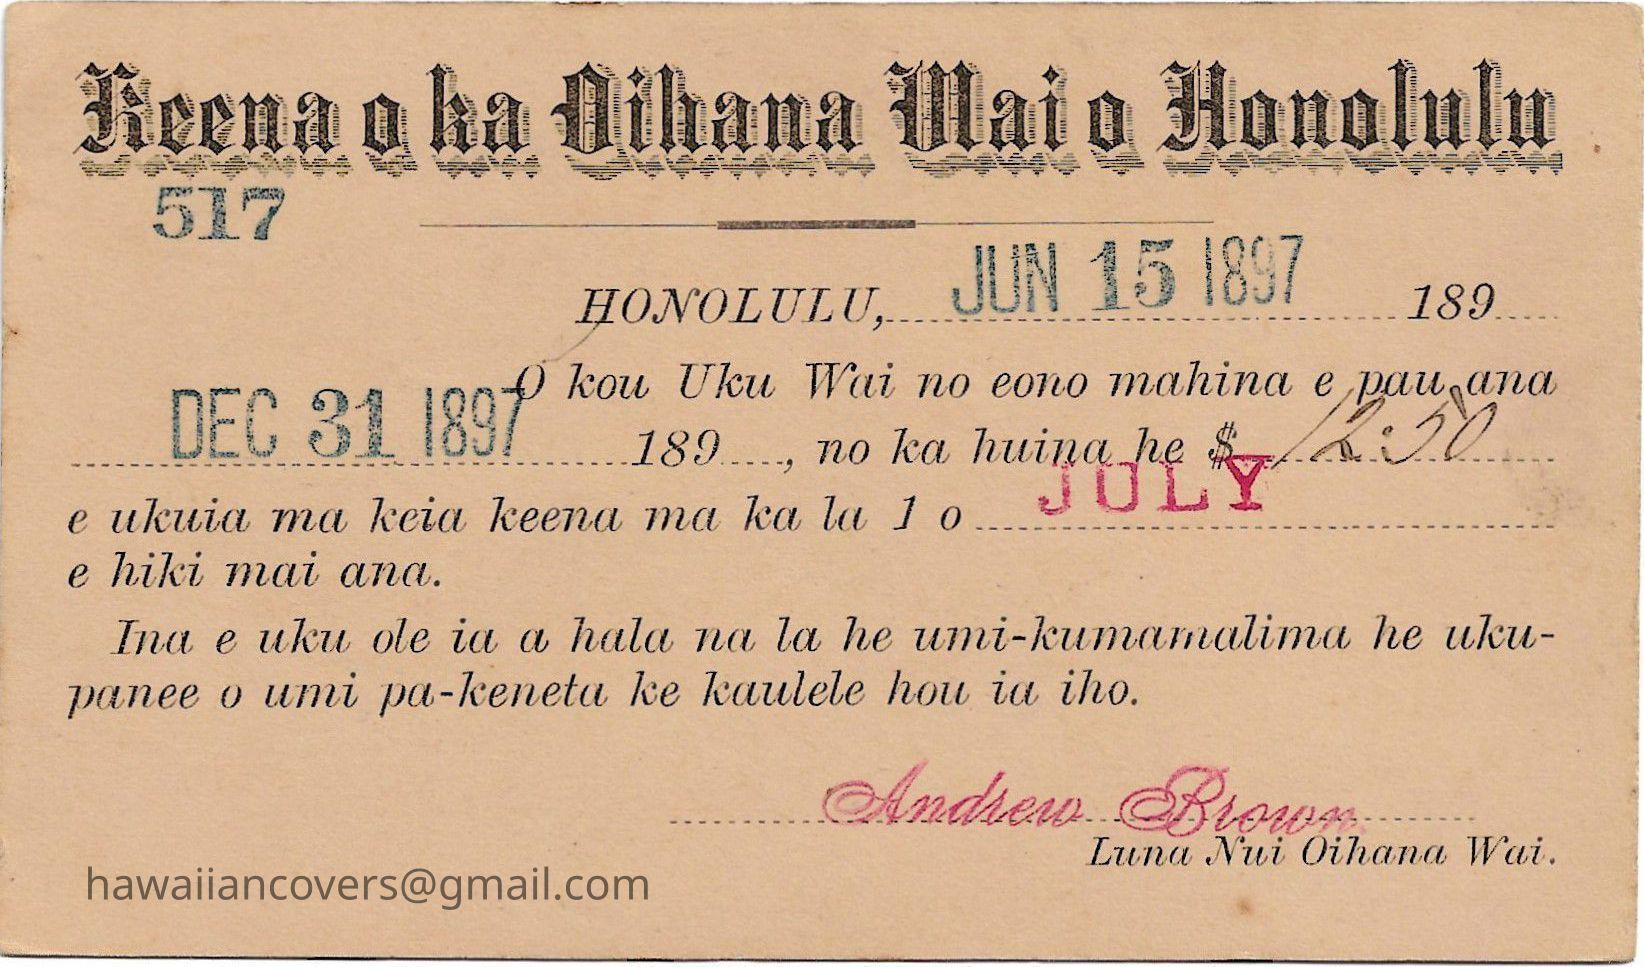 Keena o ka Oihana Wai o Honolulu
517
HONOLULU, JUN 15 1897 189
O kou Uku Wai no eono mahina e pau ana
DEC 31 1897 189 , no ka huina he $ 12:50
e ukuia ma keia keena ma ka la 1 o JULY
e hiki mai ana.
Ina e uku ole ia a hala na la he umi-kumamalima he uku-
panee o umi pa-keneta ke kaulele hou ia iho.
Andrew Brown
Luna Nui Oihana Wai.
hawaiiancovers@gmail.com